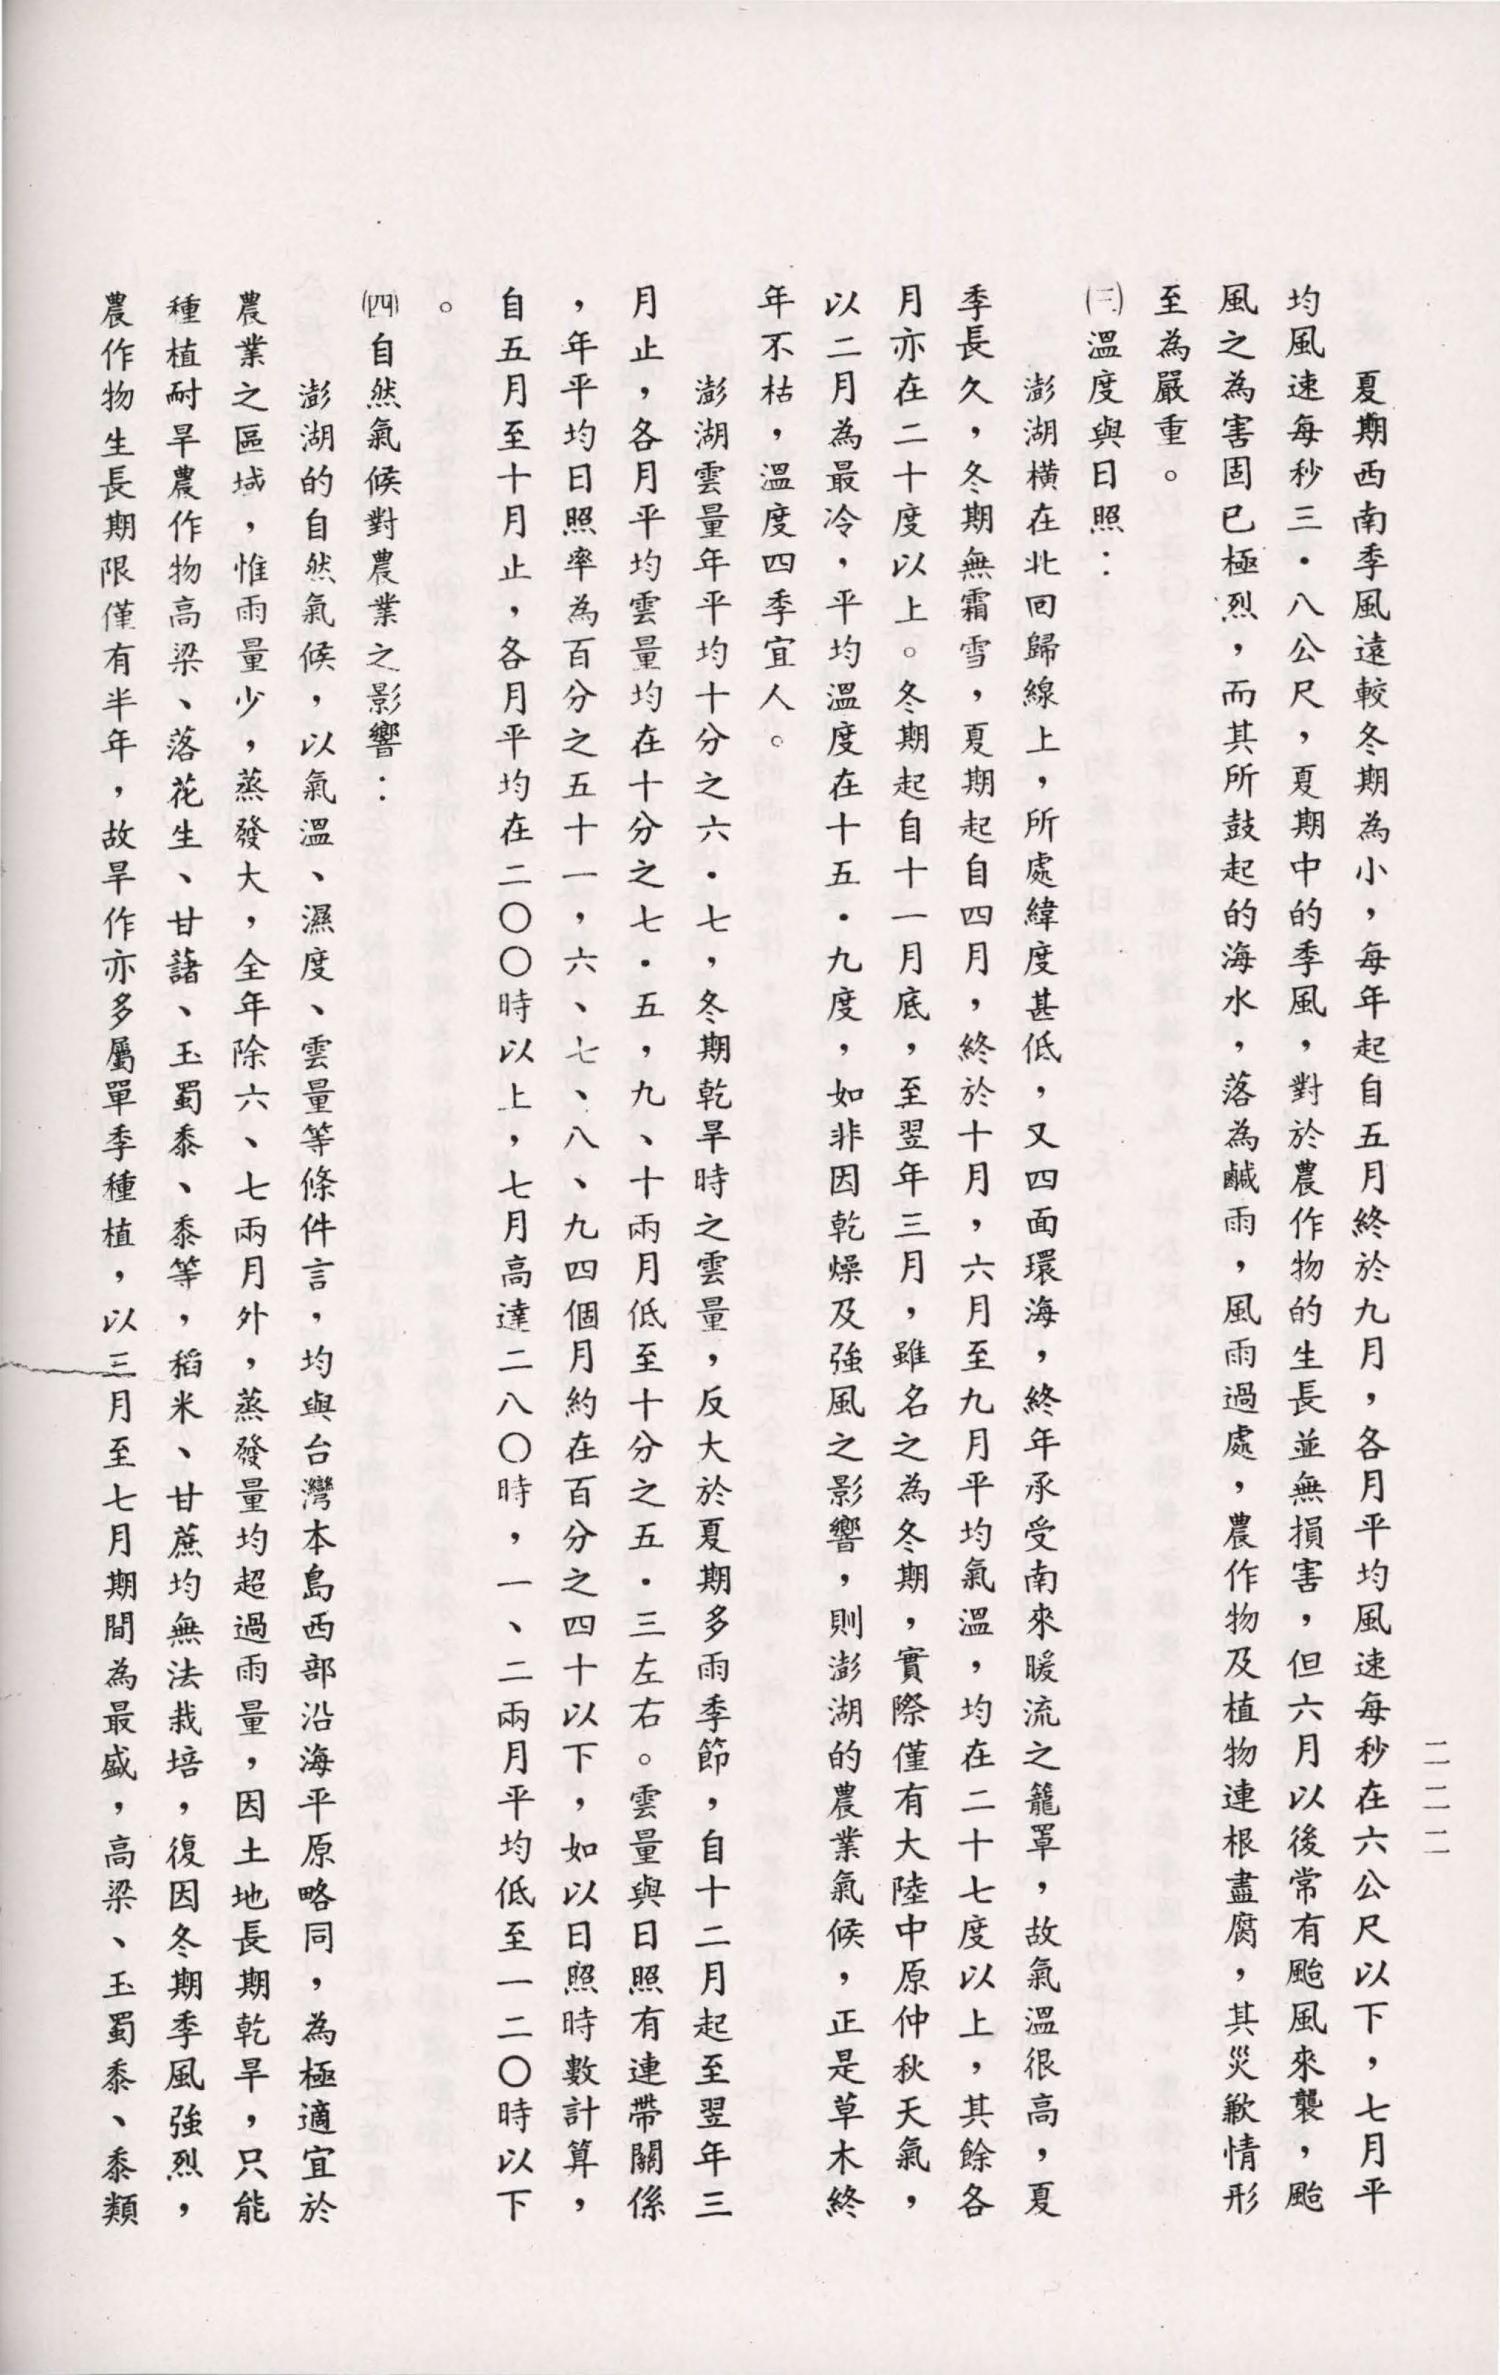 二二二
夏期西南季風遠較冬期為小，每年起自五月終於九月，各月平均風速每秒在六公尺以下，七月平
均風速每秒三．八公尺，夏期中的季風，對於農作物的生長並無損害，但六月以後常有颱風來襲，颱
風之為害固已極烈，而其所鼓起的海水，落為鹹雨，風雨過處，農作物及植物連根盡腐，其災歉情形
至為嚴重。
㈢溫度與日照：
澎湖橫在北回歸線上，所處緯度甚低，又四面環海，終年承受南來暖流之籠罩，故氣溫很高，夏
季長久，冬期無霜雪，夏期起自四月，終於十月，六月至九月平均氣溫，均在二十七度以上，其餘各
月亦在二十度以上。冬期起自十一月底，至翌年三月，雖名之為冬期，實際僅有大陸中原仲秋天氣，
以二月為最冷，平均溫度在十五．九度，如非因乾燥及強風之影響，則澎湖的農業氣候，正是草木終
年不枯，溫度四季宜人。
澎湖雲量年平均十分之六．七，冬期乾旱時之雲量，反大於夏期多雨季節，自十二月起至翌年三
月止，各月平均雲量均在十分之七．五，九、十兩月低至十分之五．三左右。雲量與日照有連帶關係
，年平均日照率為百分之五十一，六、七、八、九四個月約在百分之四十以下，如以日照時數計算，
自五月至十月止，各月平均在二〇〇時以上，七月高達二八〇時，一、二兩月平均低至一二〇時以下
。
㈣自然氣候對農業之影響：
澎湖的自然氣候，以氣溫、濕度、雲量等條件言，均與台灣本島西部沿海平原略同，為極適宜於
農業之區域，惟雨量少，蒸發大，全年除六、七兩月外，蒸發量均超過雨量，因土地長期乾旱，只能
種植耐旱農作物高梁、落花生、甘藷、玉蜀黍、黍等，稻米、甘蔗均無法栽培，復因冬期季風強烈，
農作物生長期限僅有半年，故旱作亦多屬單季種植，以三月至七月期間為最盛，高梁、玉蜀黍、黍類